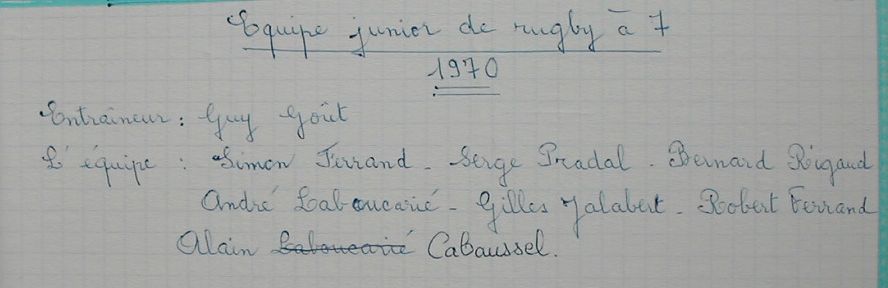 Equipe junior de rugby à 7
1970
Entraineur : Guy Goût
L'équipe : Simon Ferrand - Serge Pradal - Bernard Rigaud
André Laboucarié - Gilles Jalabert - Robert Ferrand
Alain Laboucarié Cabaussel.